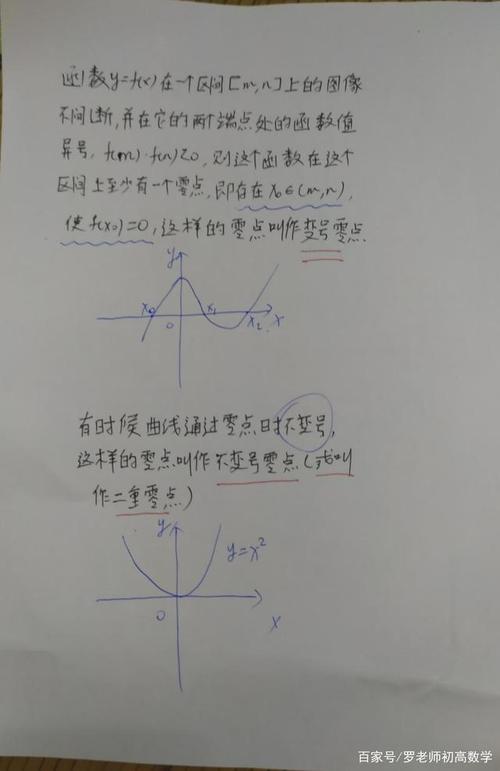 函数y=f(x)在一个区间[m,n]上的图像
不间断,并在它的两个端点处的函数值
异号,f(m)·f(n)<0,则这个函数在这个
区间上至少有一个零点,即存在x₀∈(m,n),
使f(x₀)=0,这样的零点叫作变号零点
y
x₀
x₁
x₂
x
0
有时候曲线通过零点时不变号,
这样的零点叫作不变号零点(或叫
作二重零点)
y
y=x²
0
x
百家号/罗老师初高数学